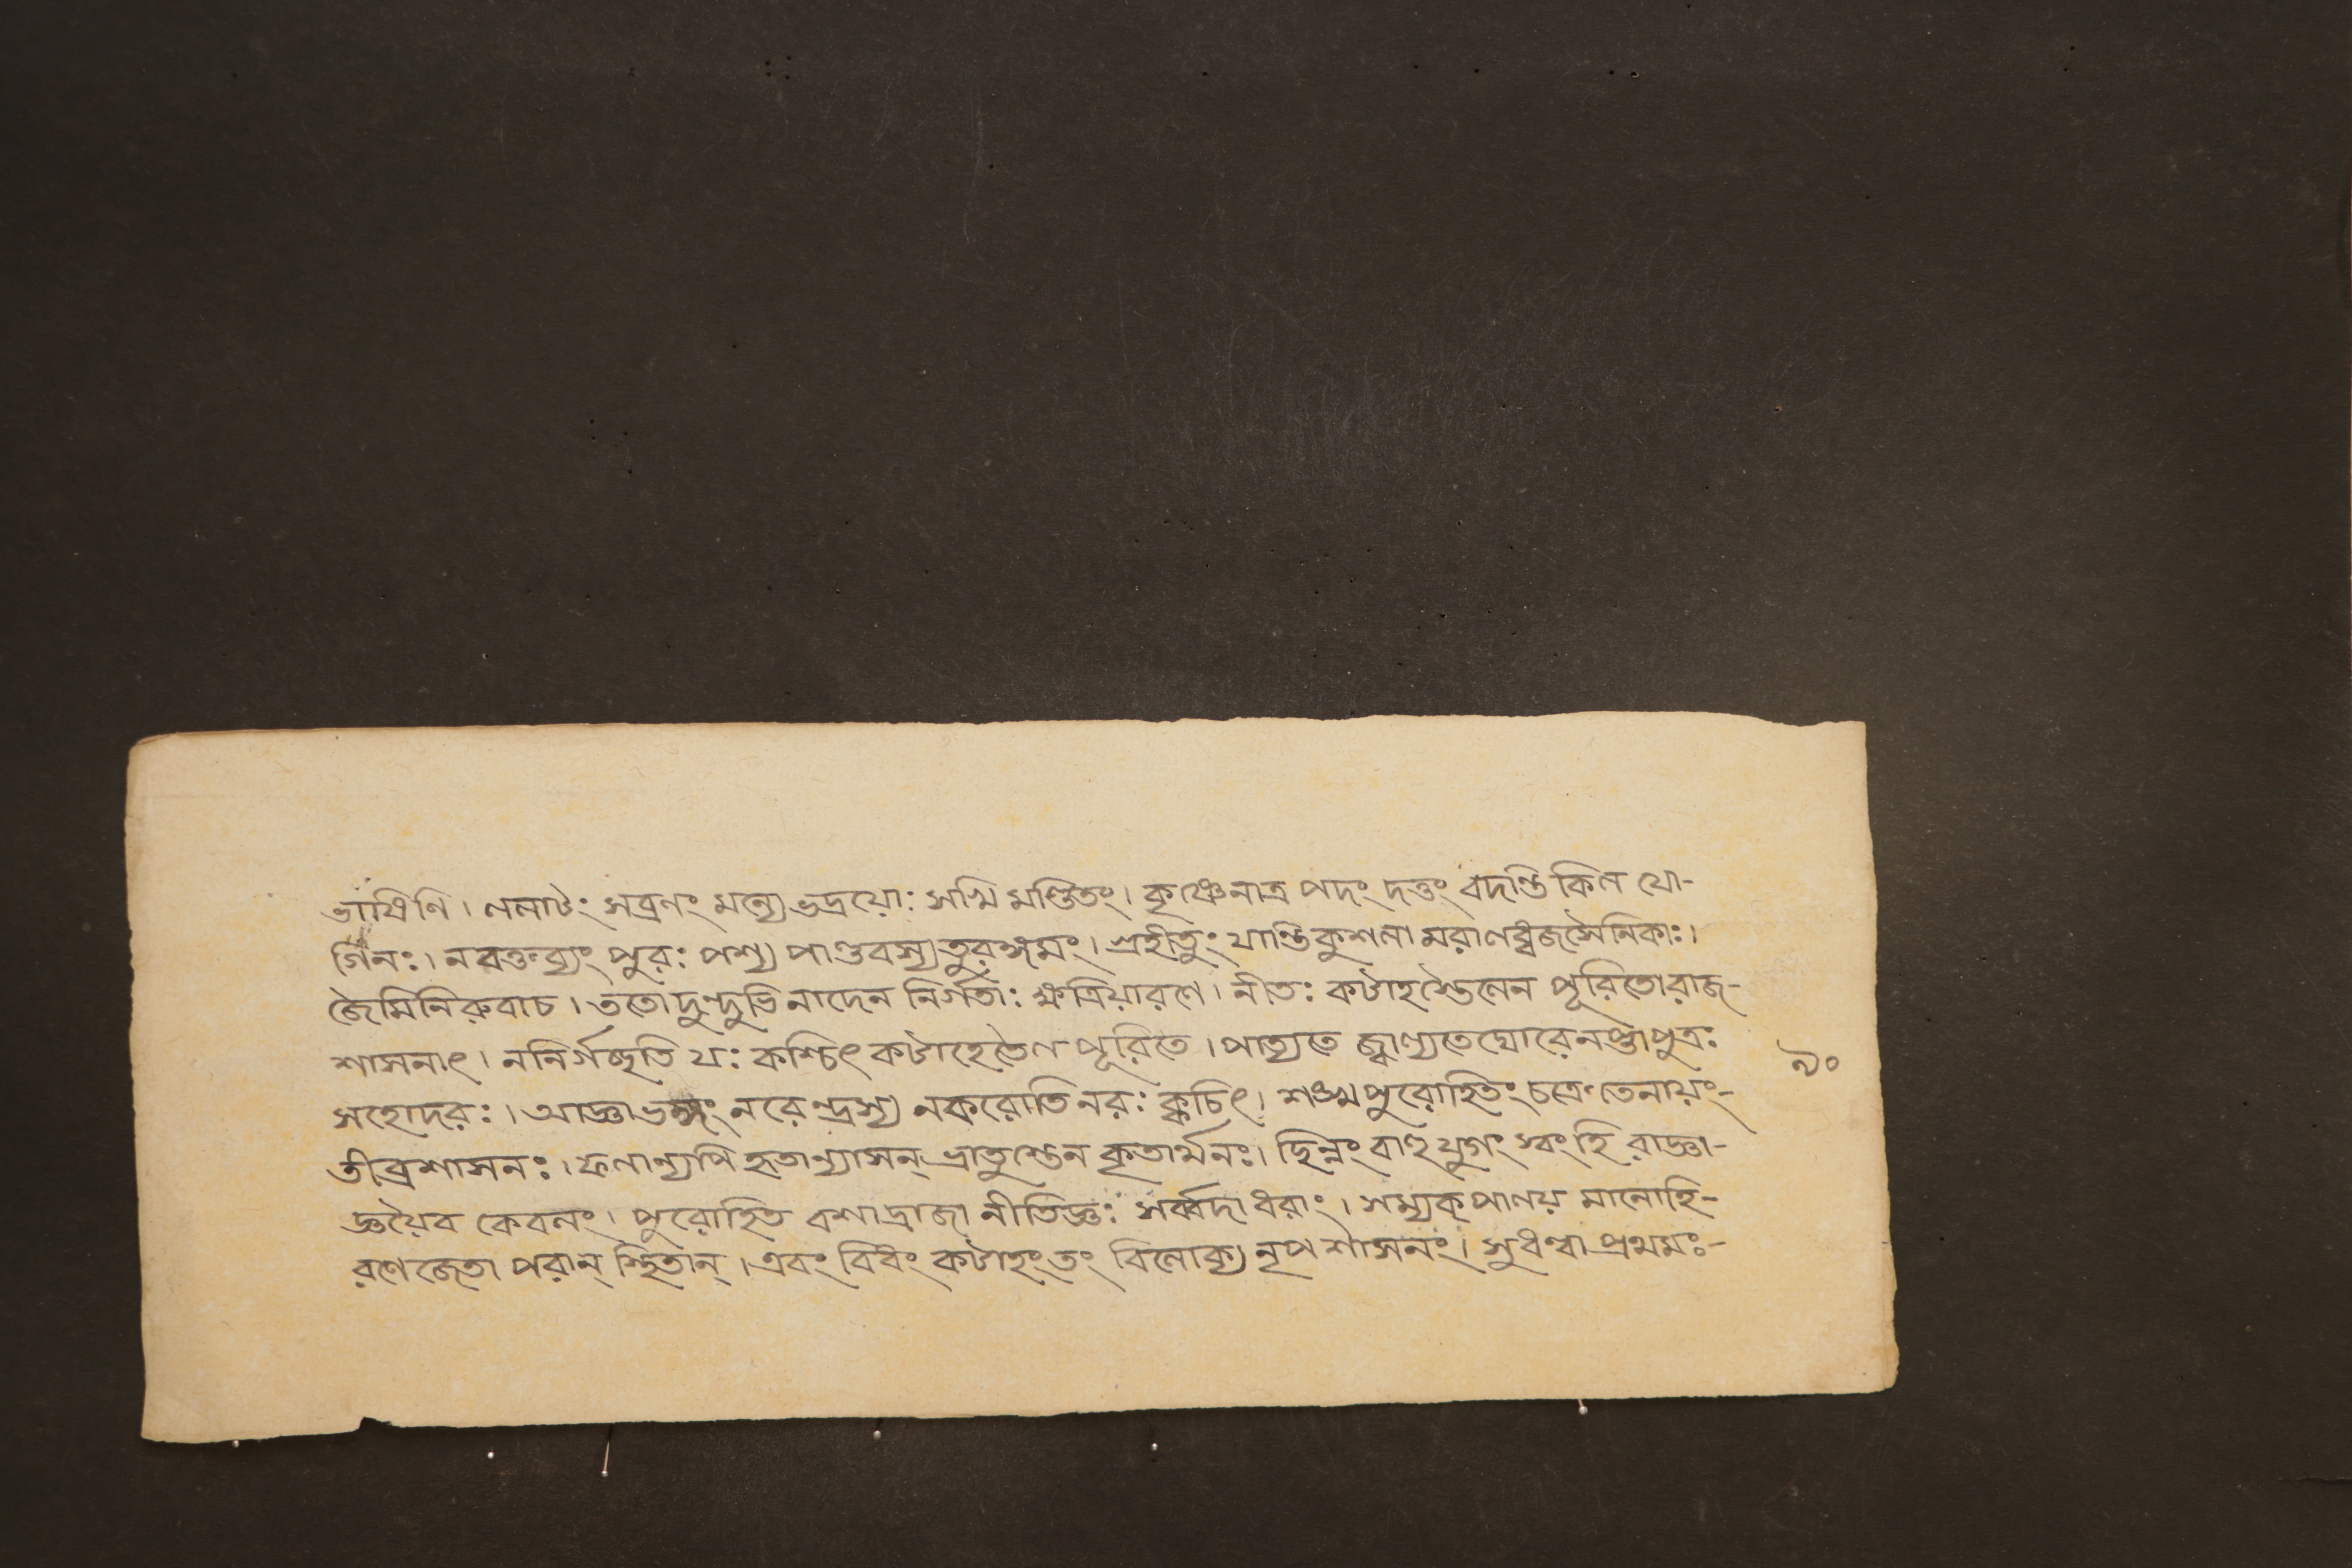 ভাষিণি। ললাটং সব্রণং মন্যে ভদ্রয়োঃ সখি মণ্ডিতং। কৃষ্ণেনাত্র পদং দত্তং বদন্তি কিল যো-
গিনঃ। ন বক্তব্যং পুরঃ পশ্য পাণ্ডবস্য তুরঙ্গমং। গ্রহীতুং যান্তি কুশলা মরালধ্বজসৈনিকাঃ।
জৈমিনিরুবাচ। ততো দুন্দুভি নাদেন নির্গতাঃ ক্ষত্রিয়ারণে। নীতঃ কটাহস্তৈলেন পূরিতো রাজ-
শাসনাৎ। ন নির্গচ্ছতি যঃ কশ্চিৎ কটাহে তৈল পূরিতে। পাত্যতে জ্বাল্যতে ঘোরে নপ্তাপুত্রঃ
সহোদরঃ। আজ্ঞাভঙ্গং নরেন্দ্রস্য ন করোতি নরঃ ক্বচিৎ। শঙ্খপুরোহিতং চক্রে তেনায়ং-
তীব্রশাসনঃ। ফলান্যপি হৃতান্যাসন্ ভ্রাতুস্তেন কৃতার্মনঃ। ছিন্নং বাহুযুগং স্বং হি রাজ্ঞা-
জ্ঞয়ৈব কেবলং। পুরোহিত বশাদ্রাজা নীতিজ্ঞঃ সর্ব্বদা ধরাং। সম্যক্ পালয় মানোহি-
রণে জেতা পরান্ স্থিতান্। এবং বিধং কটাহং তং বিলোক্য নৃপ শাসনং। সুধণ্বা প্রথমঃ-
৯০